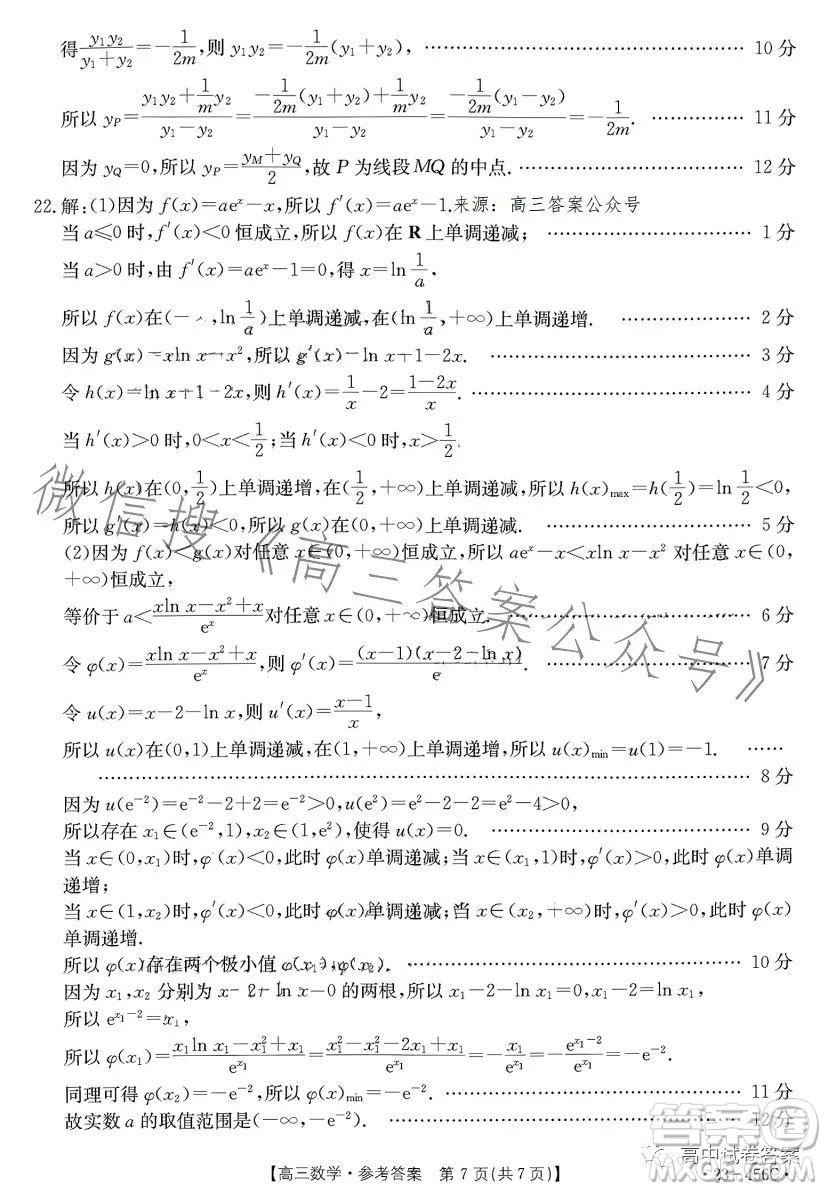 得y₁y₂/(y₁+y₂)=-1/2m,则 y₁y₂=-1/2m(y₁+y₂), …… 10 分
所以 y_P=(y₁y₂+1/m y₂)/(y₁-y₂)=(-1/2m(y₁+y₂)+1/m y₂)/(y₁-y₂)=(-1/2m(y₁-y₂))/(y₁-y₂)=-1/2m. …… 11 分
因为 y_Q=0,所以 y_P=(y_M+y_Q)/2,故 P 为线段MQ 的中点. …… 12 分
22.解:(1)因为 f(x)=aeˣ-x,所以 f′(x)=aeˣ-1.来源:高三答案公众号
当 a≤0 时,f′(x)<0 恒成立,所以 f(x)在 R 上单调递减; …… 1 分
当 a>0 时,由 f′(x)=aeˣ-1=0,得 x=ln 1/a,
所以 f(x)在(-,ln 1/a)上单调递减,在(ln 1/a,+∞)上单调递增. …… 2 分
因为 g(x)=xln x-x²,所以 g′(x)=ln x+1-2x. …… 3 分
令 h(x)=ln x+1-2x,则 h′(x)=1/x-2=(1-2x)/x. …… 4 分
当 h′(x)>0 时,0<x<1/2;当 h′(x)<0 时,x>1/2.
所以 h(x)在(0,1/2)上单调递增,在(1/2,+∞)上单调递减,所以 h(x)max=h(1/2)=ln 1/2<0,
所以 g′(x)=h(x)<0,所以 g(x)在(0,+∞)上单调递减. …… 5 分
(2)因为 f(x)<g(x)对任意 x∈(0,+∞)恒成立,所以 aeˣ-x<xln x-x² 对任意 x∈(0,
+∞)恒成立,
等价于 a<(xln x-x²+x)/eˣ对任意 x∈(0,+∞)恒成立. …… 6 分
令 φ(x)=(xln x-x²+x)/eˣ,则 φ′(x)=(x-1)(x-2-ln x)/e. …… 7 分
令 u(x)=x-2-ln x,则 u′(x)=(x-1)/x,
所以 u(x)在(0,1)上单调递减,在(1,+∞)上单调递增,所以 u(x)min=u(1)=-1. ……
…… 8 分
因为 u(e⁻²)=e⁻²-2+2=e⁻²>0,u(e²)=e²-2-2=e²-4>0,
所以存在 x₁∈(e⁻²,1),x₂∈(1,e²),使得 u(x)=0. …… 9 分
当 x∈(0,x₁)时,φ′(x)<0,此时 φ(x)单调递减;当 x∈(x₁,1)时,φ′(x)>0,此时 φ(x)单调
递增;
当 x∈(1,x₂)时,φ′(x)<0,此时 φ(x)单调递减;当 x∈(x₂,+∞)时,φ′(x)>0,此时 φ(x)
单调递增.
所以 φ(x)存在两个极小值 φ(x₁),φ(x₂). …… 10 分
因为 x₁,x₂ 分别为 x-2-ln x=0 的两根,所以 x₁-2-ln x₁=0,所以 x₁-2=ln x₁,
所以 e^(x₁-2)=x₁,
所以 φ(x₁)=(x₁ln x₁-x₁²+x₁)/e^x₁=(x₁²-x₁²-2x₁+x₁)/e^x₁=-x₁/e^x₁=-e^(x₁-2)/e^x₁=-e⁻².
同理可得 φ(x₂)=-e⁻²,所以 φ(x)min=-e⁻². …… 11 分
故实数 a 的取值范围是(-∞,-e⁻²). …… 12 分
微信搜《高三答案公众号》
答案圈
高中试卷答案
【高三数学·参考答案 第 7 页(共 7 页)】
·23-456C·